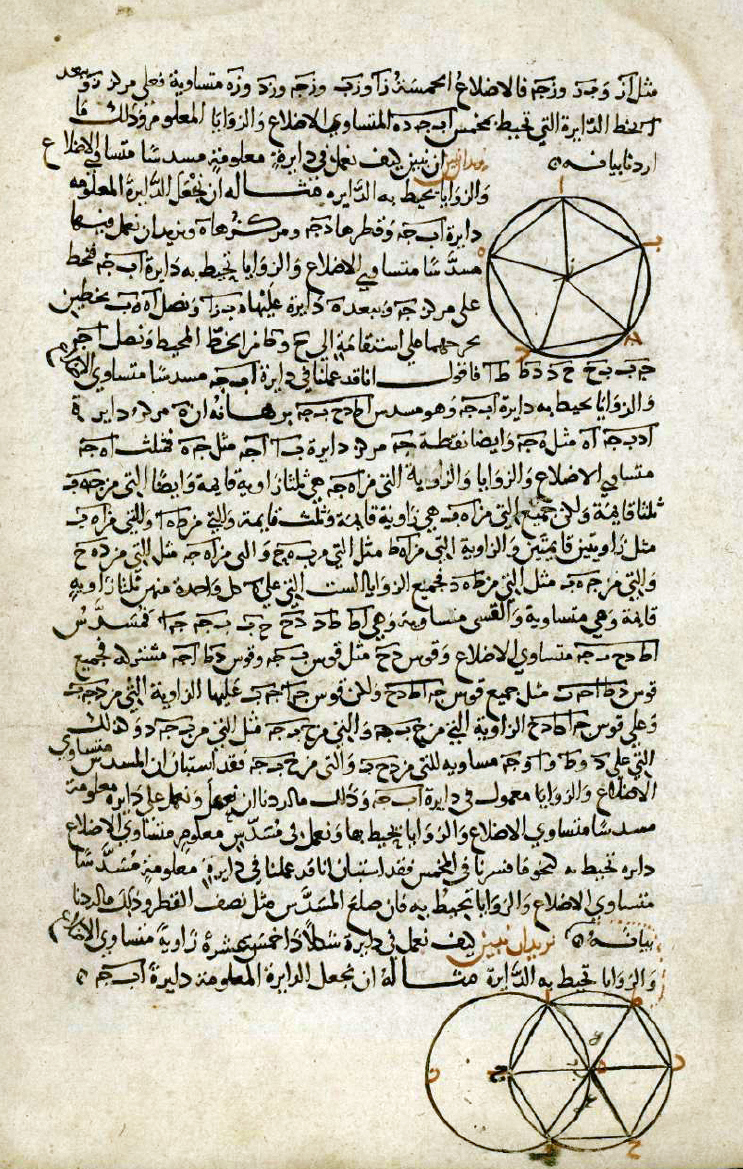 مثل از و ب ز و زج فالاضلاع الخمسة زا و زب و زج و زد و زه متساوية فعلى مركز ز وببعد
الدايرة التي تحيط بمخمس ا ب ج د ه المتساوي الاضلاع والزوايا المعلوم وذلك ما
اردنا بيانه نريد ان نبين كيف نعمل في دايرة معلومة مسدسا متساوي الاضلاع
والزوايا يحيط به الدايره مثاله ان نجعل الدايرة المعلومه
دايرة ا ب ج وقطرها د ج ومركزها ه ونريد ان نعمل فيها
مسدسا متساوي الاضلاع والزوايا تحيط به دايرة ا ب ج فنخط
على مركز ج وببعد ج ه دايرة عليها ونصل ا ه ه ب بخطين
نخرجهما على استقامة الى ح و ط من الخط المحيط ونصل ا ج
ج ب ب ح ح د د ط ط ا فاقول انا قد عملنا في دايرة ا ب ج مسدسا متساوي الاضلاع
والزوايا يحيط به دايرة ا ب ج وهو مسدس ا ط د ح ب ج برهانه ان ه مركز دايرة
ا د ب ج ا ه مثل ه ج وايضا نقطة ج مركز دايرة ا ج مثل ج ه فمثلث ا ه ج
متساوي الاضلاع والزوايا والزاوية التي من ا ه ج هي ثلثا زاوية قايمة وايضا التي من ج ه ب
ثلثا قايمة ولكن جميع التي من ا ه ب هي زاوية قايمة وثلث قايمة والتي من ط ه ا والتي من ا ه ب
مثل زاويتين قايمتين والزاوية التي من ا ه ط مثل التي من ب ه ح والتي من ا ه ج مثل التي من د ه ح
والتي من ج ه ب مثل التي من ط ه د فجميع الزوايا الست التي على ه كل واحدة منهن ثلثا زاوية
قايمة وهي متساوية والقسي متساوية وهي ا ط ط د د ح ح ب ب ج ج ا فمسدس
ا ط د ح ب ج متساوي الاضلاع وقوس د ح مثل قوس ب ج وقوس د ط ا ج مشتركة فجميع
قوس د ط ا ج ب مثل جميع قوس ج ا ط د ح ولكن قوس ج ا ط د ب عليها الزاوية التي من د ح ب
وعلى قوس ج ا ط د ح الزاوية التي من ح ب ج والتي من ح ب ج مثل التي من ب ج د وكذلك
التي على د و ط و ا و ج مساويه للتي من د ح ب والتي من ح ب ج فقد استبان ان المسدس متساوي
الاضلاع والزوايا معمول في دايرة ا ب ج وذلك ما اردنا ان نعمل ونعمل على دايرة معلومة
مسدسا متساوي الاضلاع والزوايا يحيط بها ونعمل في مسدس معلوم متساوي الاضلاع
دايره تحيط به كنحو ما فسرنا في المخمس فقد استبان انا قد عملنا في دايرة معلومة مسدسا
متساوي الاضلاع والزوايا تحيط به فان ضلع المسدس مثل نصف القطر وذلك ما اردنا
بيانه نريد ان نبين كيف نعمل في دايرة شكلا ذا خمس عشرة زاوية متساوي الاضلاع
والزوايا تحيط به الدايرة مثاله ان نجعل الدايرة المعلومة دايرة ا ب ج